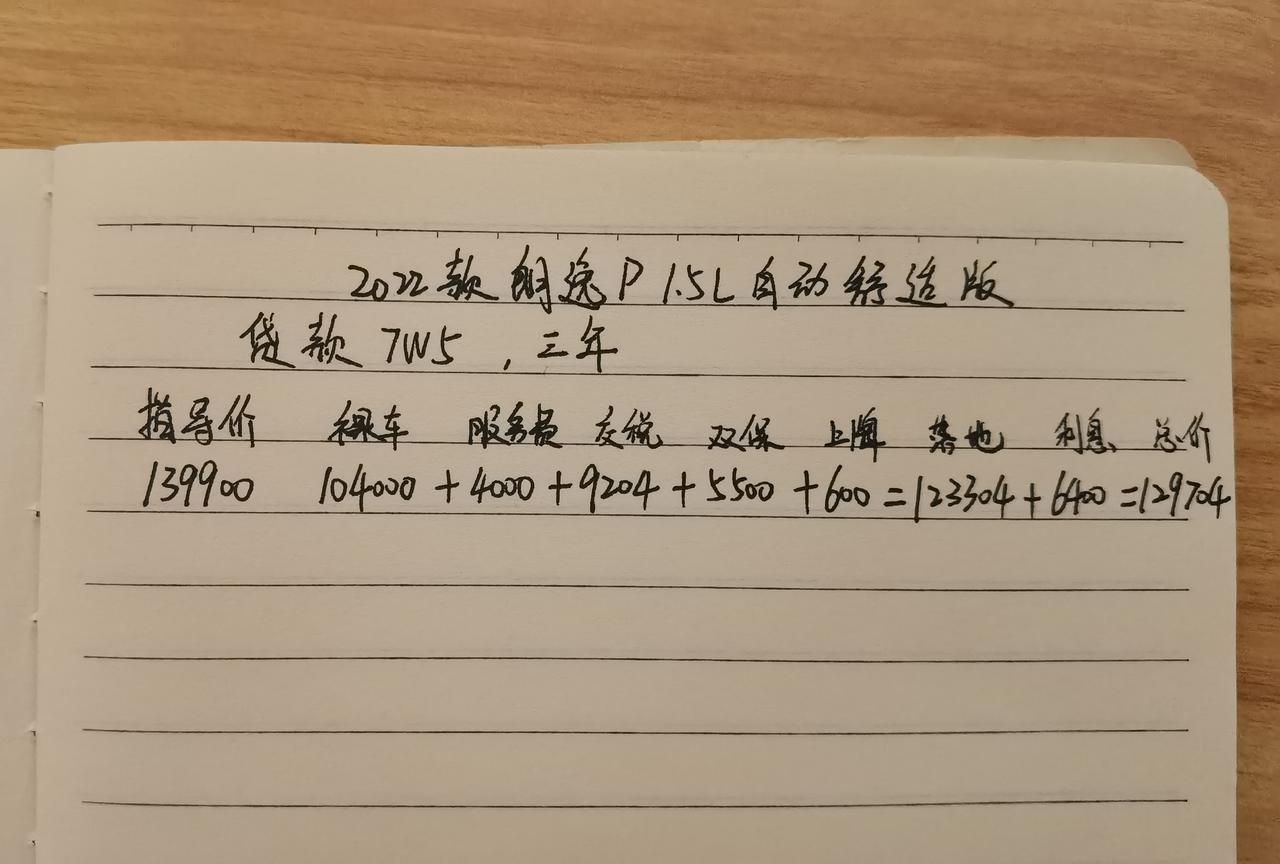 2022款朗逸P 1.5L自动舒适版
贷款7W5，三年
指导价 裸车 服务员 交税 双保 上牌 落地 利息 总价
139900 104000+4000+9204+5500+600=123304+6400=129704